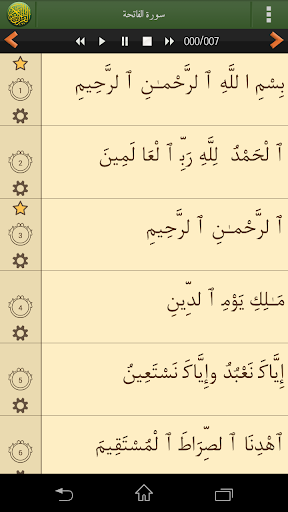 سورة الفاتحة
000/007
1
بِسْمِ ٱللَّهِ ٱلرَّحْمَـٰنِ ٱلرَّحِيمِ
2
ٱلْحَمْدُ لِلَّهِ رَبِّ ٱلْعَالَمِينَ
3
ٱلرَّحْمَـٰنِ ٱلرَّحِيمِ
4
مَـٰلِكِ يَوْمِ ٱلدِّينِ
5
إِيَّاكَ نَعْبُدُ وإِيَّاكَ نَسْتَعِينُ
6
ٱهْدِنَا ٱلصِّرَاطَ ٱلْمُسْتَقِيمَ